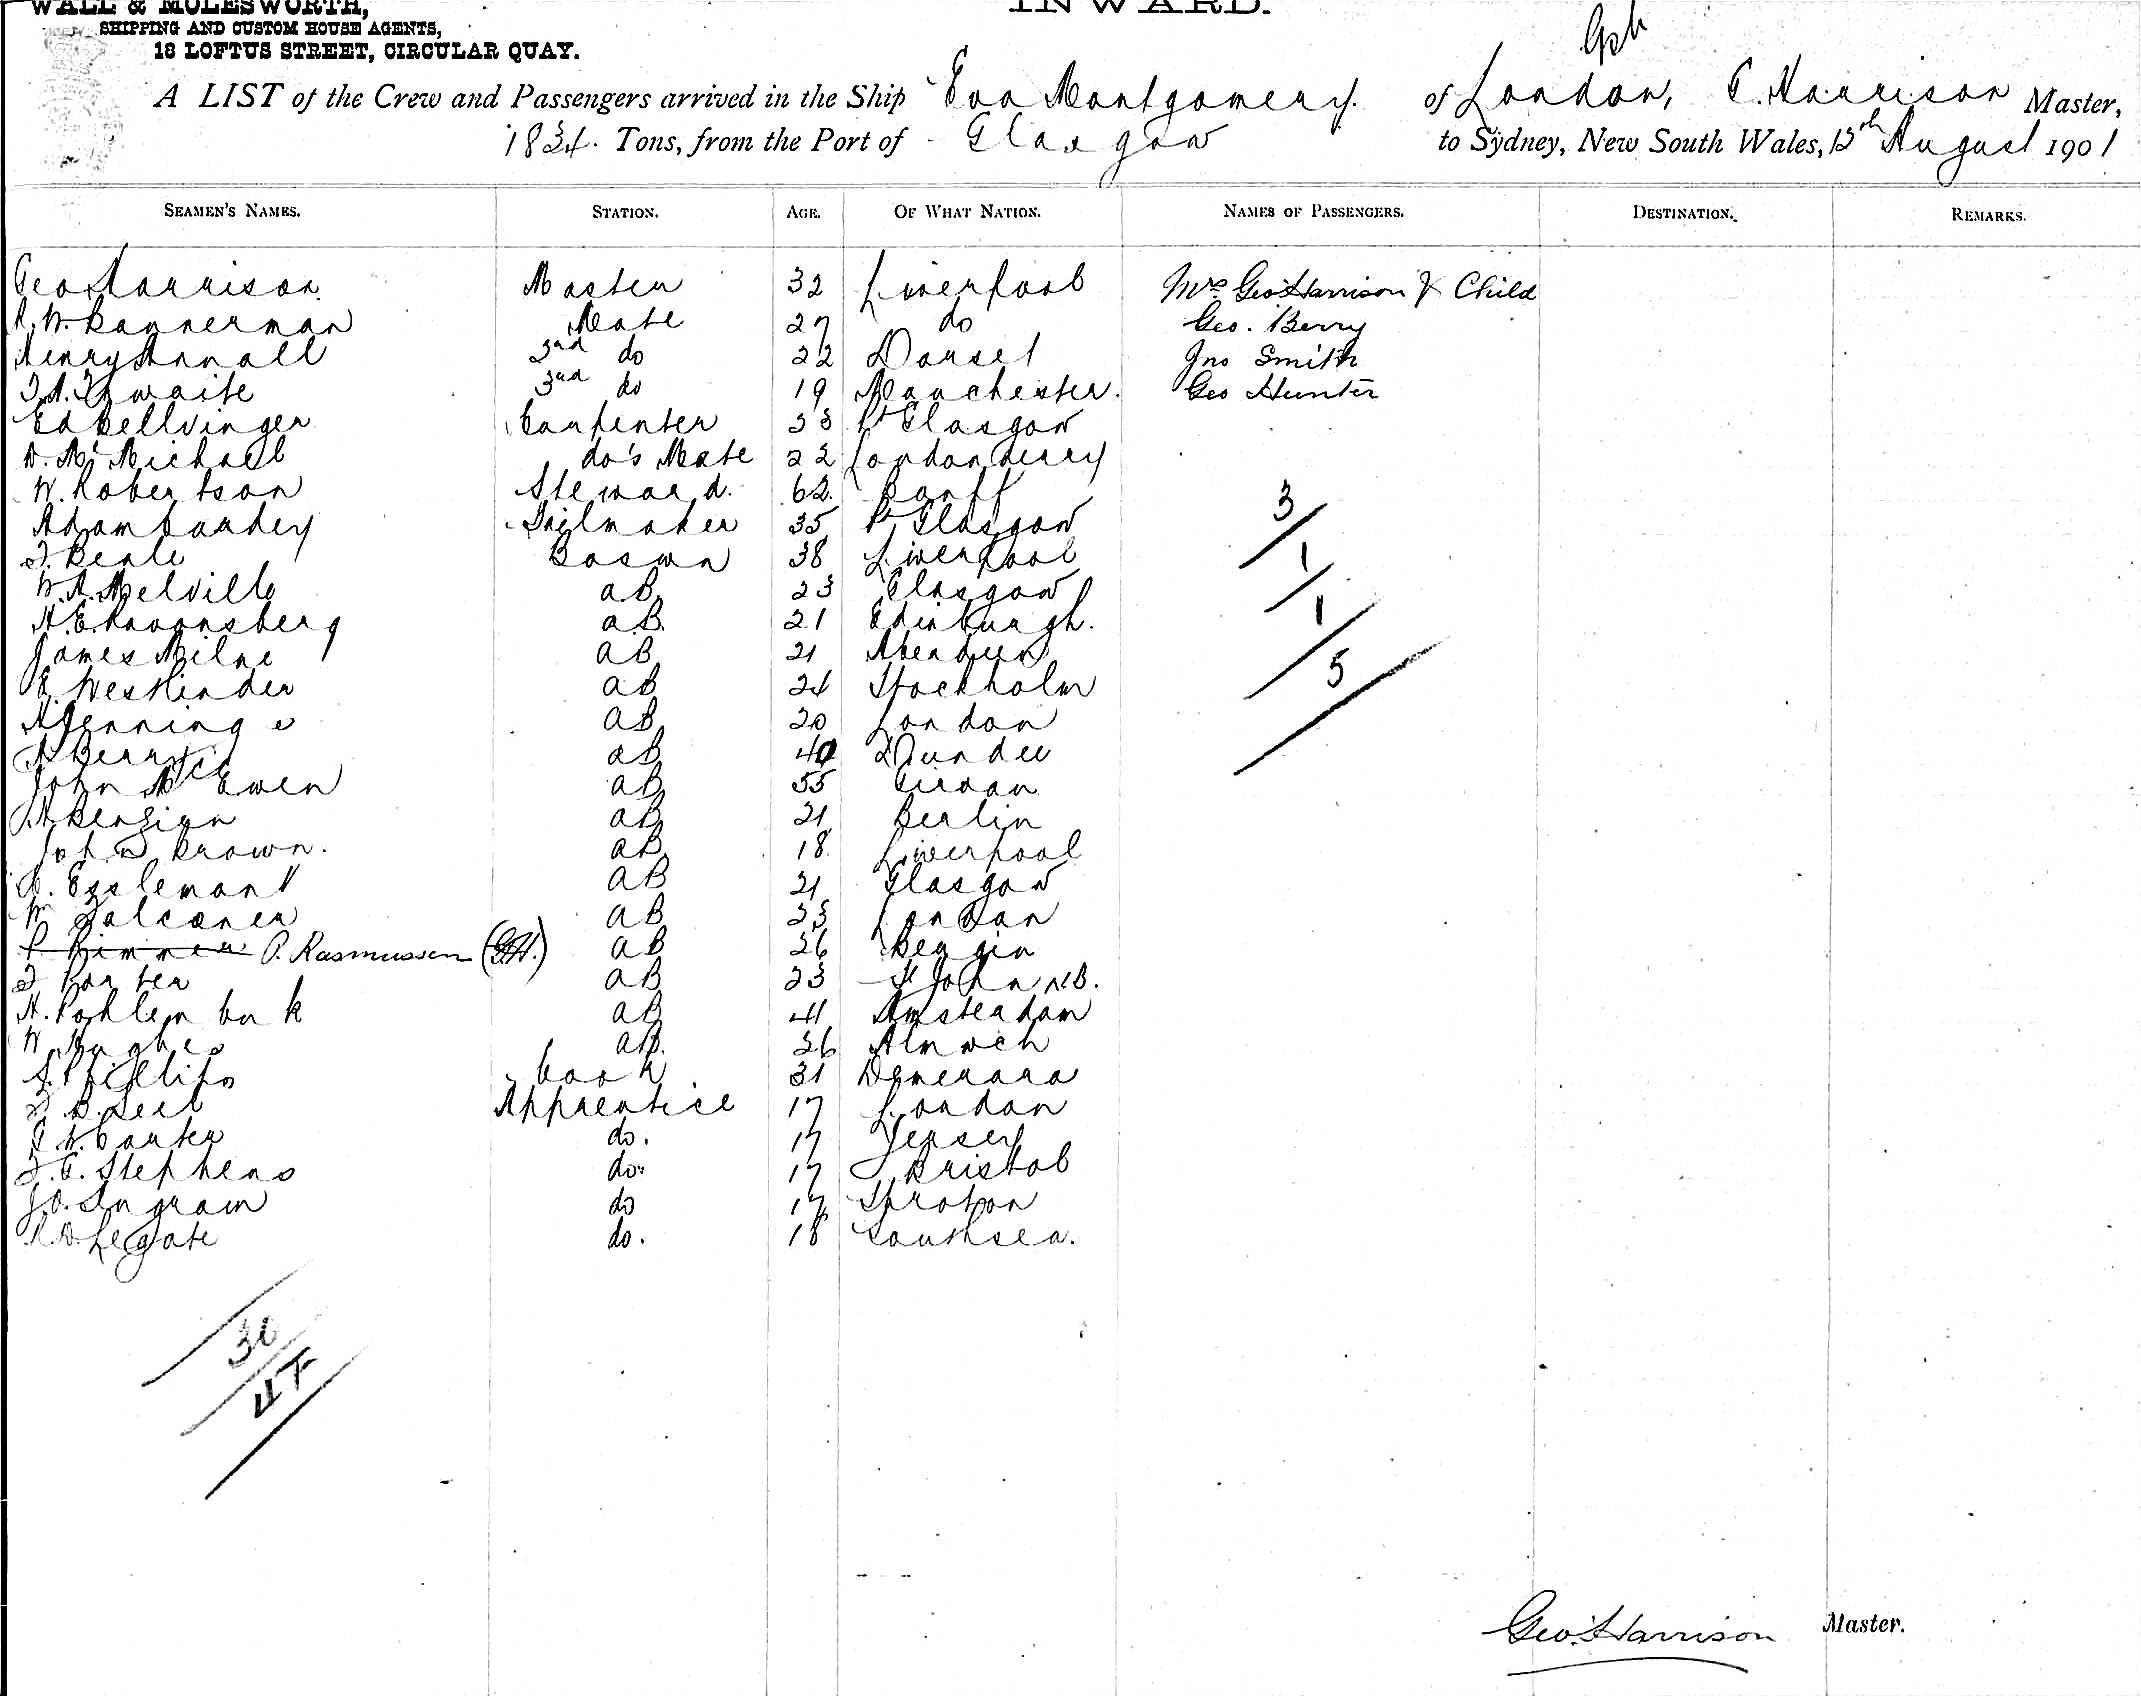 WALL & MOLESWORTH,
SHIPPING AND CUSTOM HOUSE AGENTS,
18 LOFTUS STREET, CIRCULAR QUAY.
INWARD.
A LIST of the Crew and Passengers arrived in the Ship Eva Montgomery. of London, G. Harrison Master,
1834. Tons, from the Port of Glasgow to Sydney, New South Wales, 15th August 1901
SEAMEN'S NAMES. STATION. AGE. OF WHAT NATION. NAMES OF PASSENGERS. DESTINATION. REMARKS.
Geo Harrison Master 32 Liverpool Mrs Geo Harrison & Child
R. W. Bannerman Mate 27 do Geo. Berry
Henry Annall do 22 Dorset Jno Smith
Thwaite 3rd do 19 Manchester. Geo Hunter
Ed Carpenter 33 Pt Glasgow
D. McMichael do's Mate 22 Londonderry
W. Robertson Steward. 62. Banff
Adam Sailmaker 35 Pt Glasgow
Beale Boswn 38 Liverpool
W. A. Melville aB 23 Glasgow
H. E. aB. 21 Edinburgh.
James Milne aB 21 Aberdeen
Westlinder aB 24 Stockholm
Jennings aB 20 London
Berry aB 40 Dundee
John McEwen aB 55 Girvan
aB 21 Berlin
John Brown. aB 18. Liverpool
Esslemont aB 21 Glasgow
W Falconer aB 23 London
P. Rasmussen (GH.) aB 26 Bergin
Porter aB 23 St John N.B.
H. aB 41 Amsterdam
W Hughes aB. 26 Alnwch
Phillips Cook 31 Demerara
Apprentice 17 London
W. Carter do. 17 Jersey
Stephens do. 17 Bristol
Ingram do 17 Sproton
Legate do. 18 Southsea.
3/
1/
1/
5
30
Geo. Harrison Master.